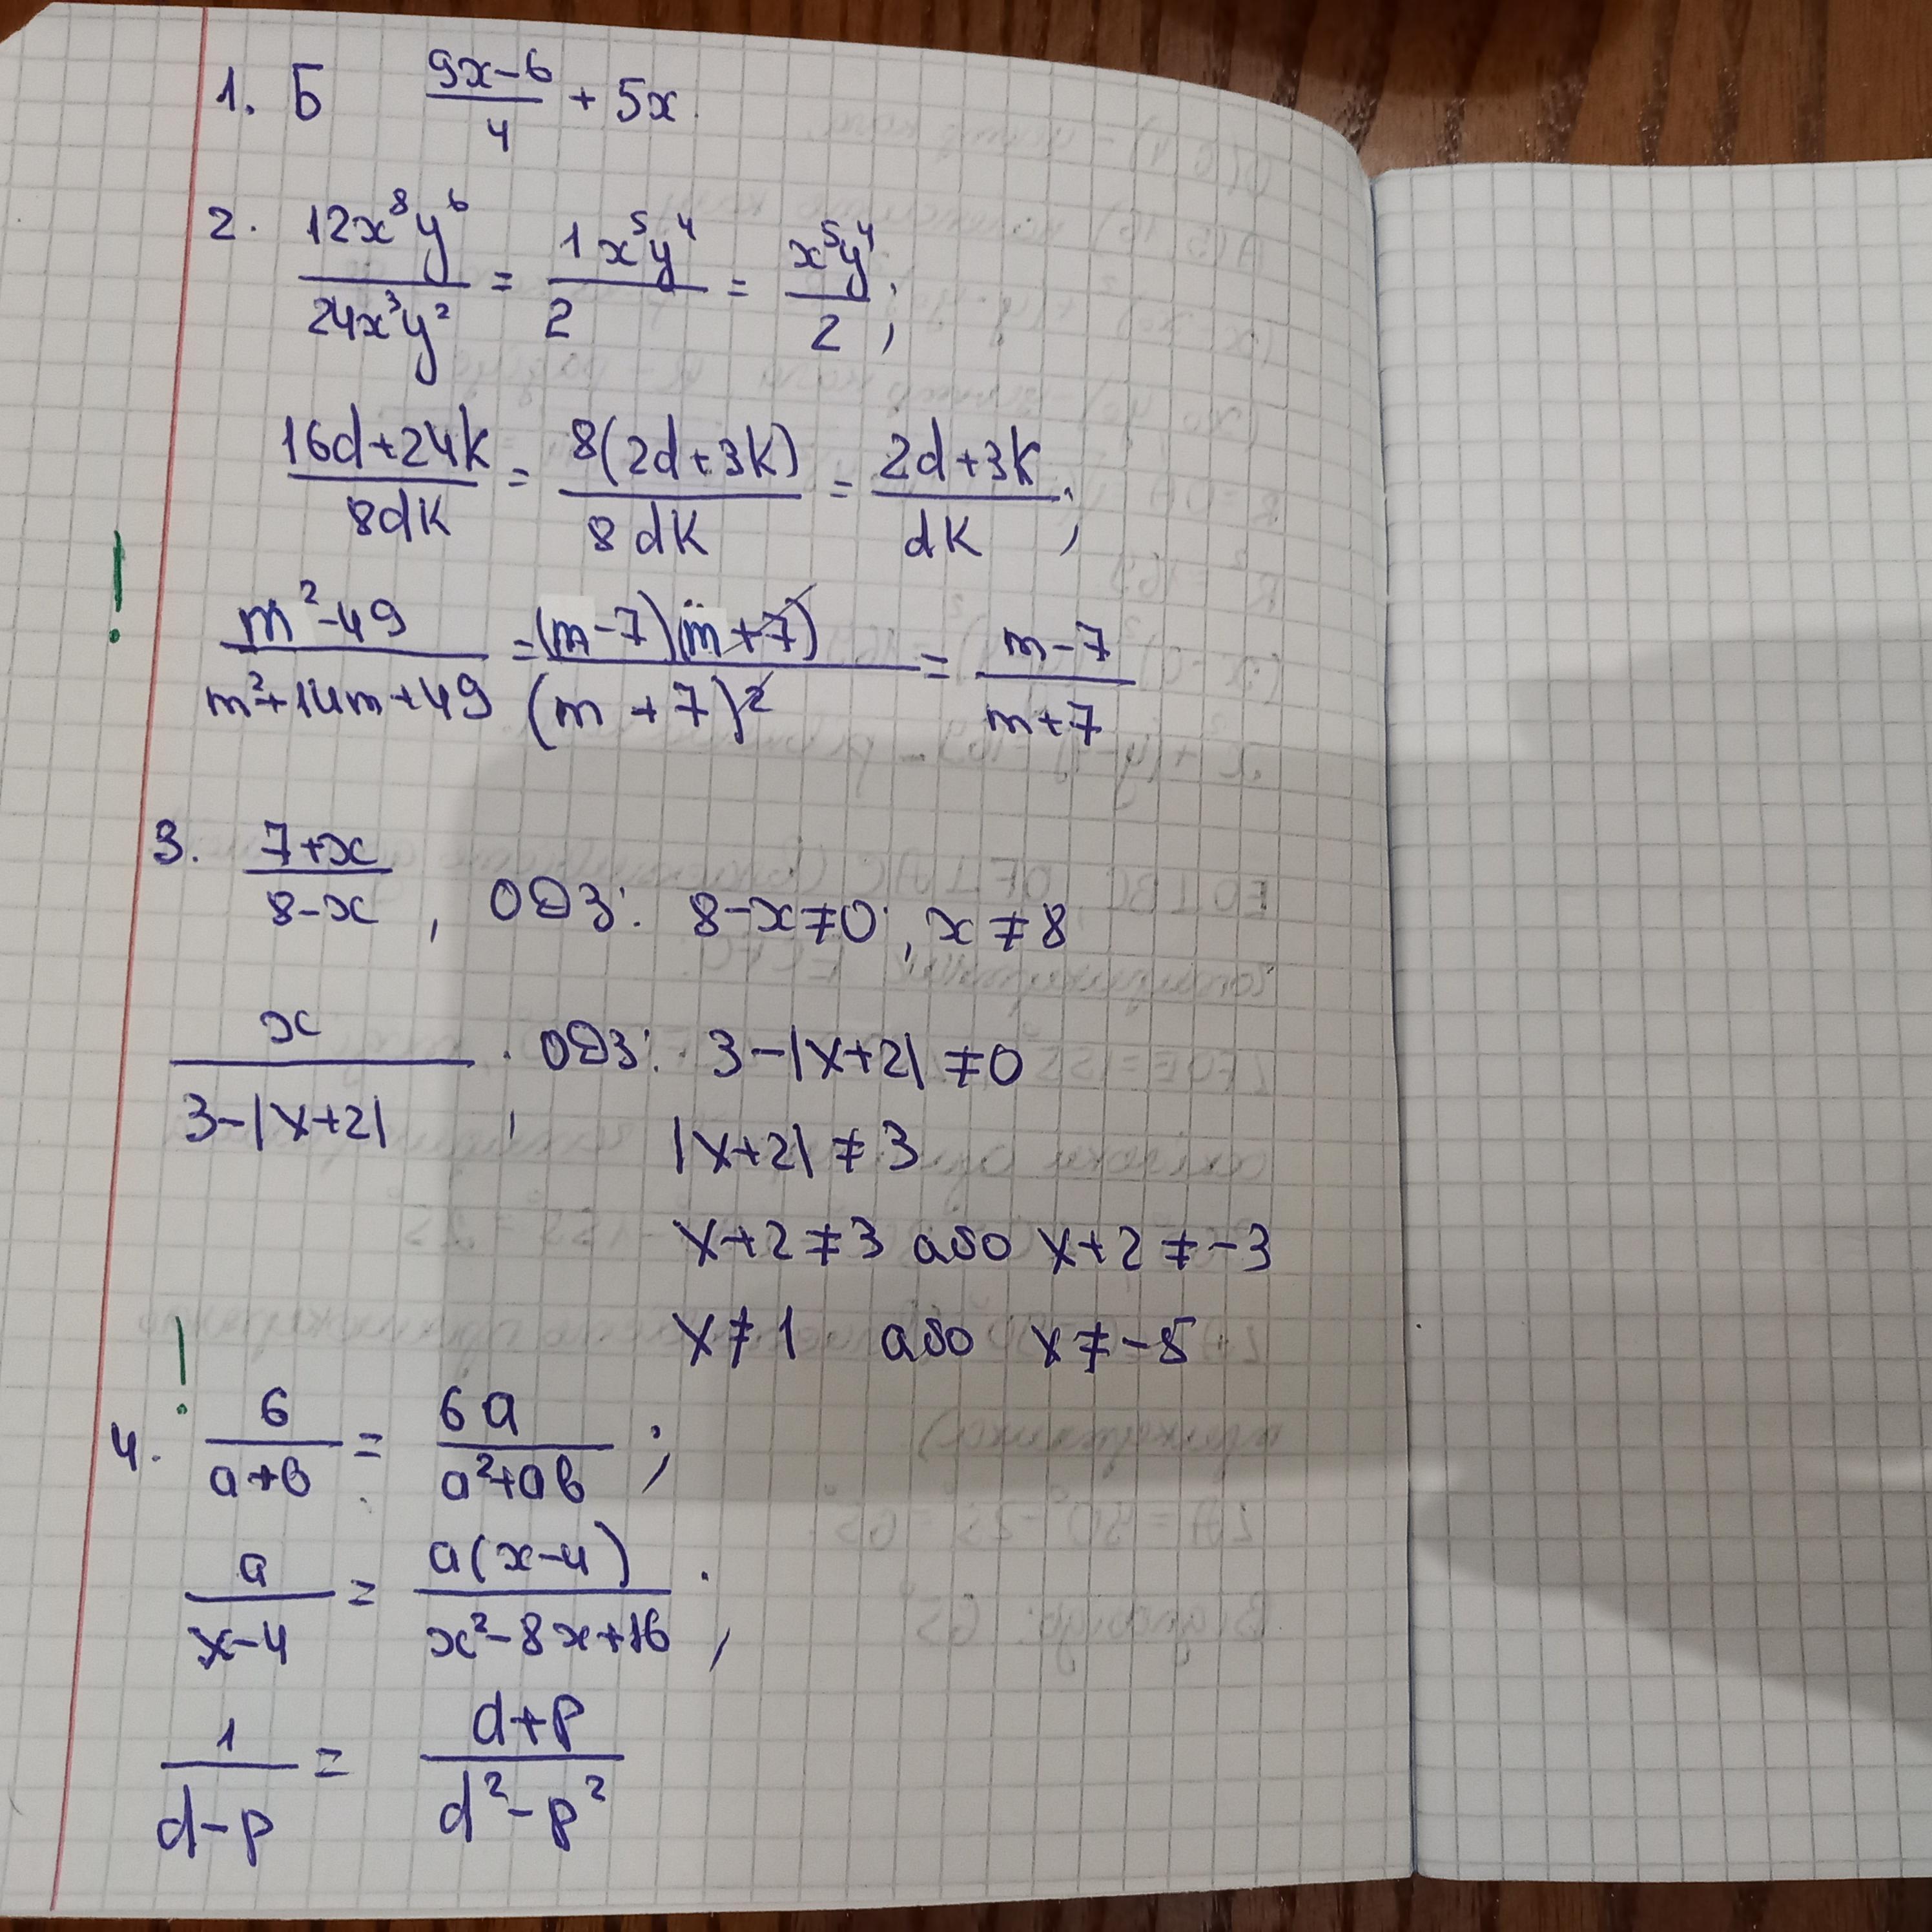 1. Б (9x-6)/4 + 5x
2. 12x⁸y⁶/24x³y² = 1x⁵y⁴/2 = x⁵y⁴/2;
(16d+24k)/8dk = 8(2d+3k)/8dk = (2d+3k)/dk;
! (m²-49)/(m²+14m+49) = (m-7)(m+7)/(m+7)² = (m-7)/(m+7)
3. (7+x)/(8-x), ОДЗ: 8-x≠0; x≠8
x/(3-|x+2|); ОДЗ: 3-|x+2|≠0
|x+2|≠3
x+2≠3 або x+2≠-3
x≠1 або x≠-5
!
4. 6/(a+b) = 6a/(a²+ab);
a/(x-4) = a(x-4)/(x²-8x+16);
1/(d-p) = (d+p)/(d²-p²)